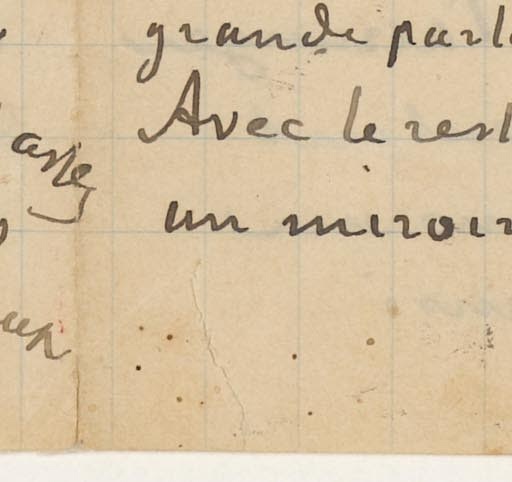 grande part
Avec le rest
un miroir
assez